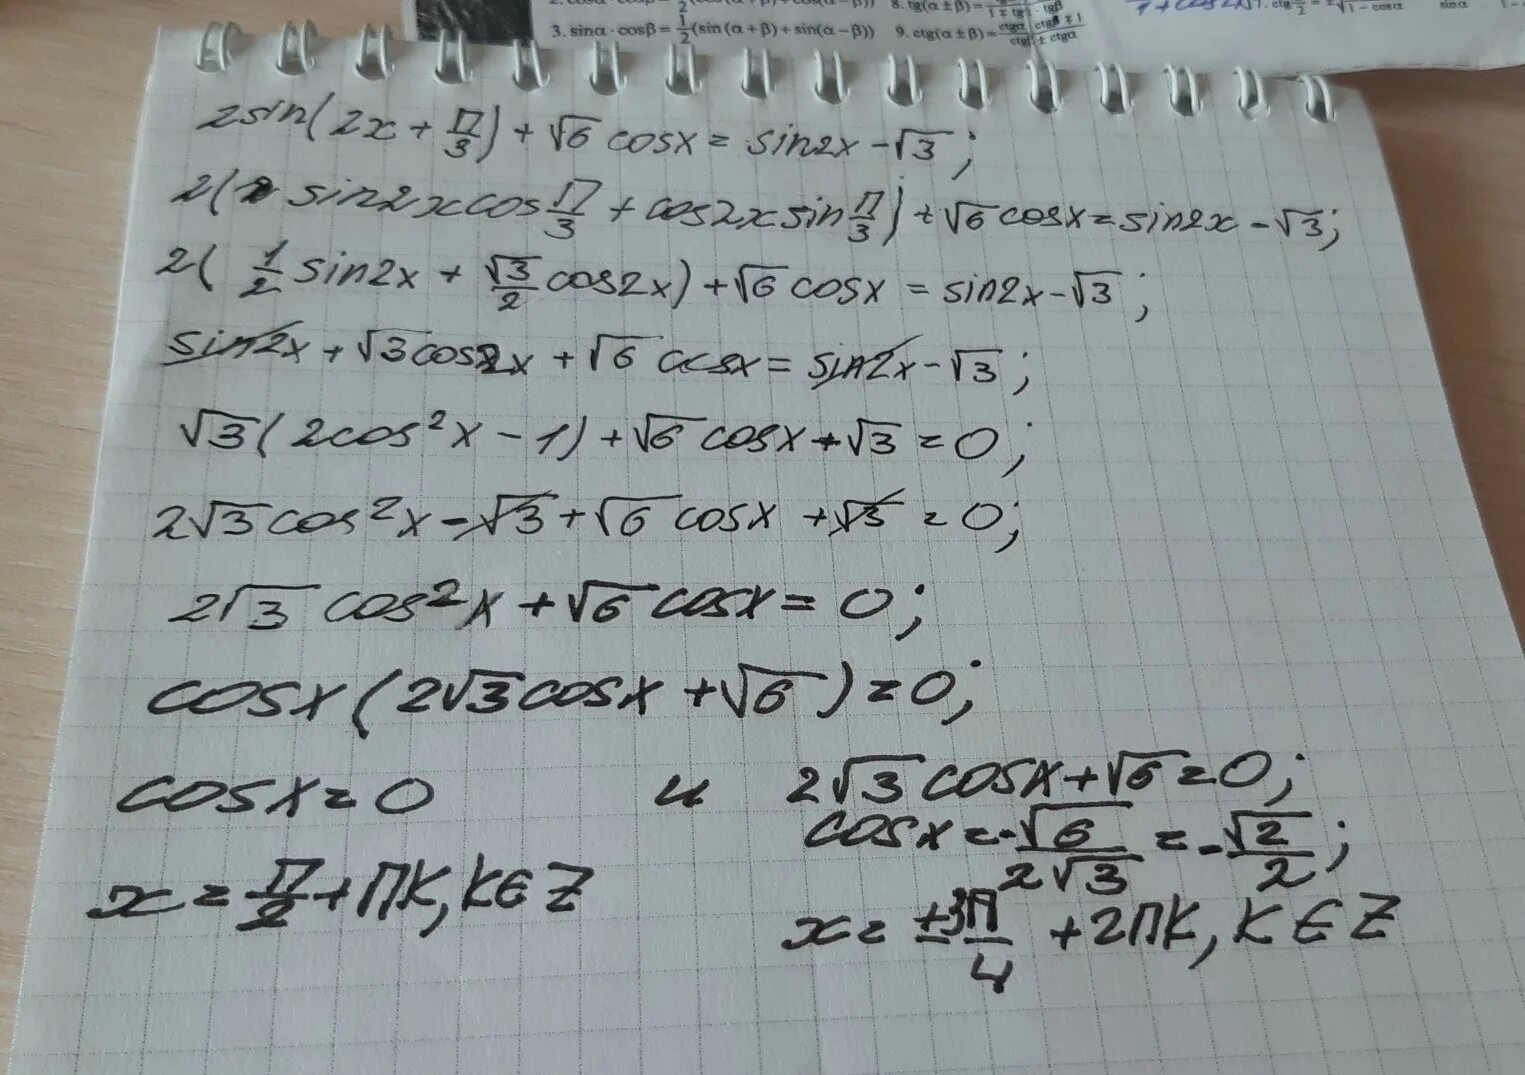 3. sinα · cosβ = 1/2(sin(α + β) + sin(α − β)) 9. ctg(α ± β) = ctgα · ctgβ ∓ 1 / ctgβ ± ctgα
2sin(2x + π/3) + √6 cosx = sin2x − √3;
2(sin2x cos π/3 + cos2x sin π/3) + √6 cosx = sin2x − √3;
2(1/2 sin2x + √3/2 cos2x) + √6 cosx = sin2x − √3;
sin2x + √3cos2x + √6 cosx = sin2x − √3;
√3(2cos²x − 1) + √6 cosx + √3 = 0;
2√3cos²x − √3 + √6 cosx + √3 = 0;
2√3 cos²x + √6 cosx = 0;
cosx(2√3cosx + √6) = 0;
cosx = 0 и 2√3cosx + √6 = 0;
cosx = −√6/2√3 = −√2/2;
x = π/2 + πk, k∈Z
x = ±3π/4 + 2πk, k∈Z